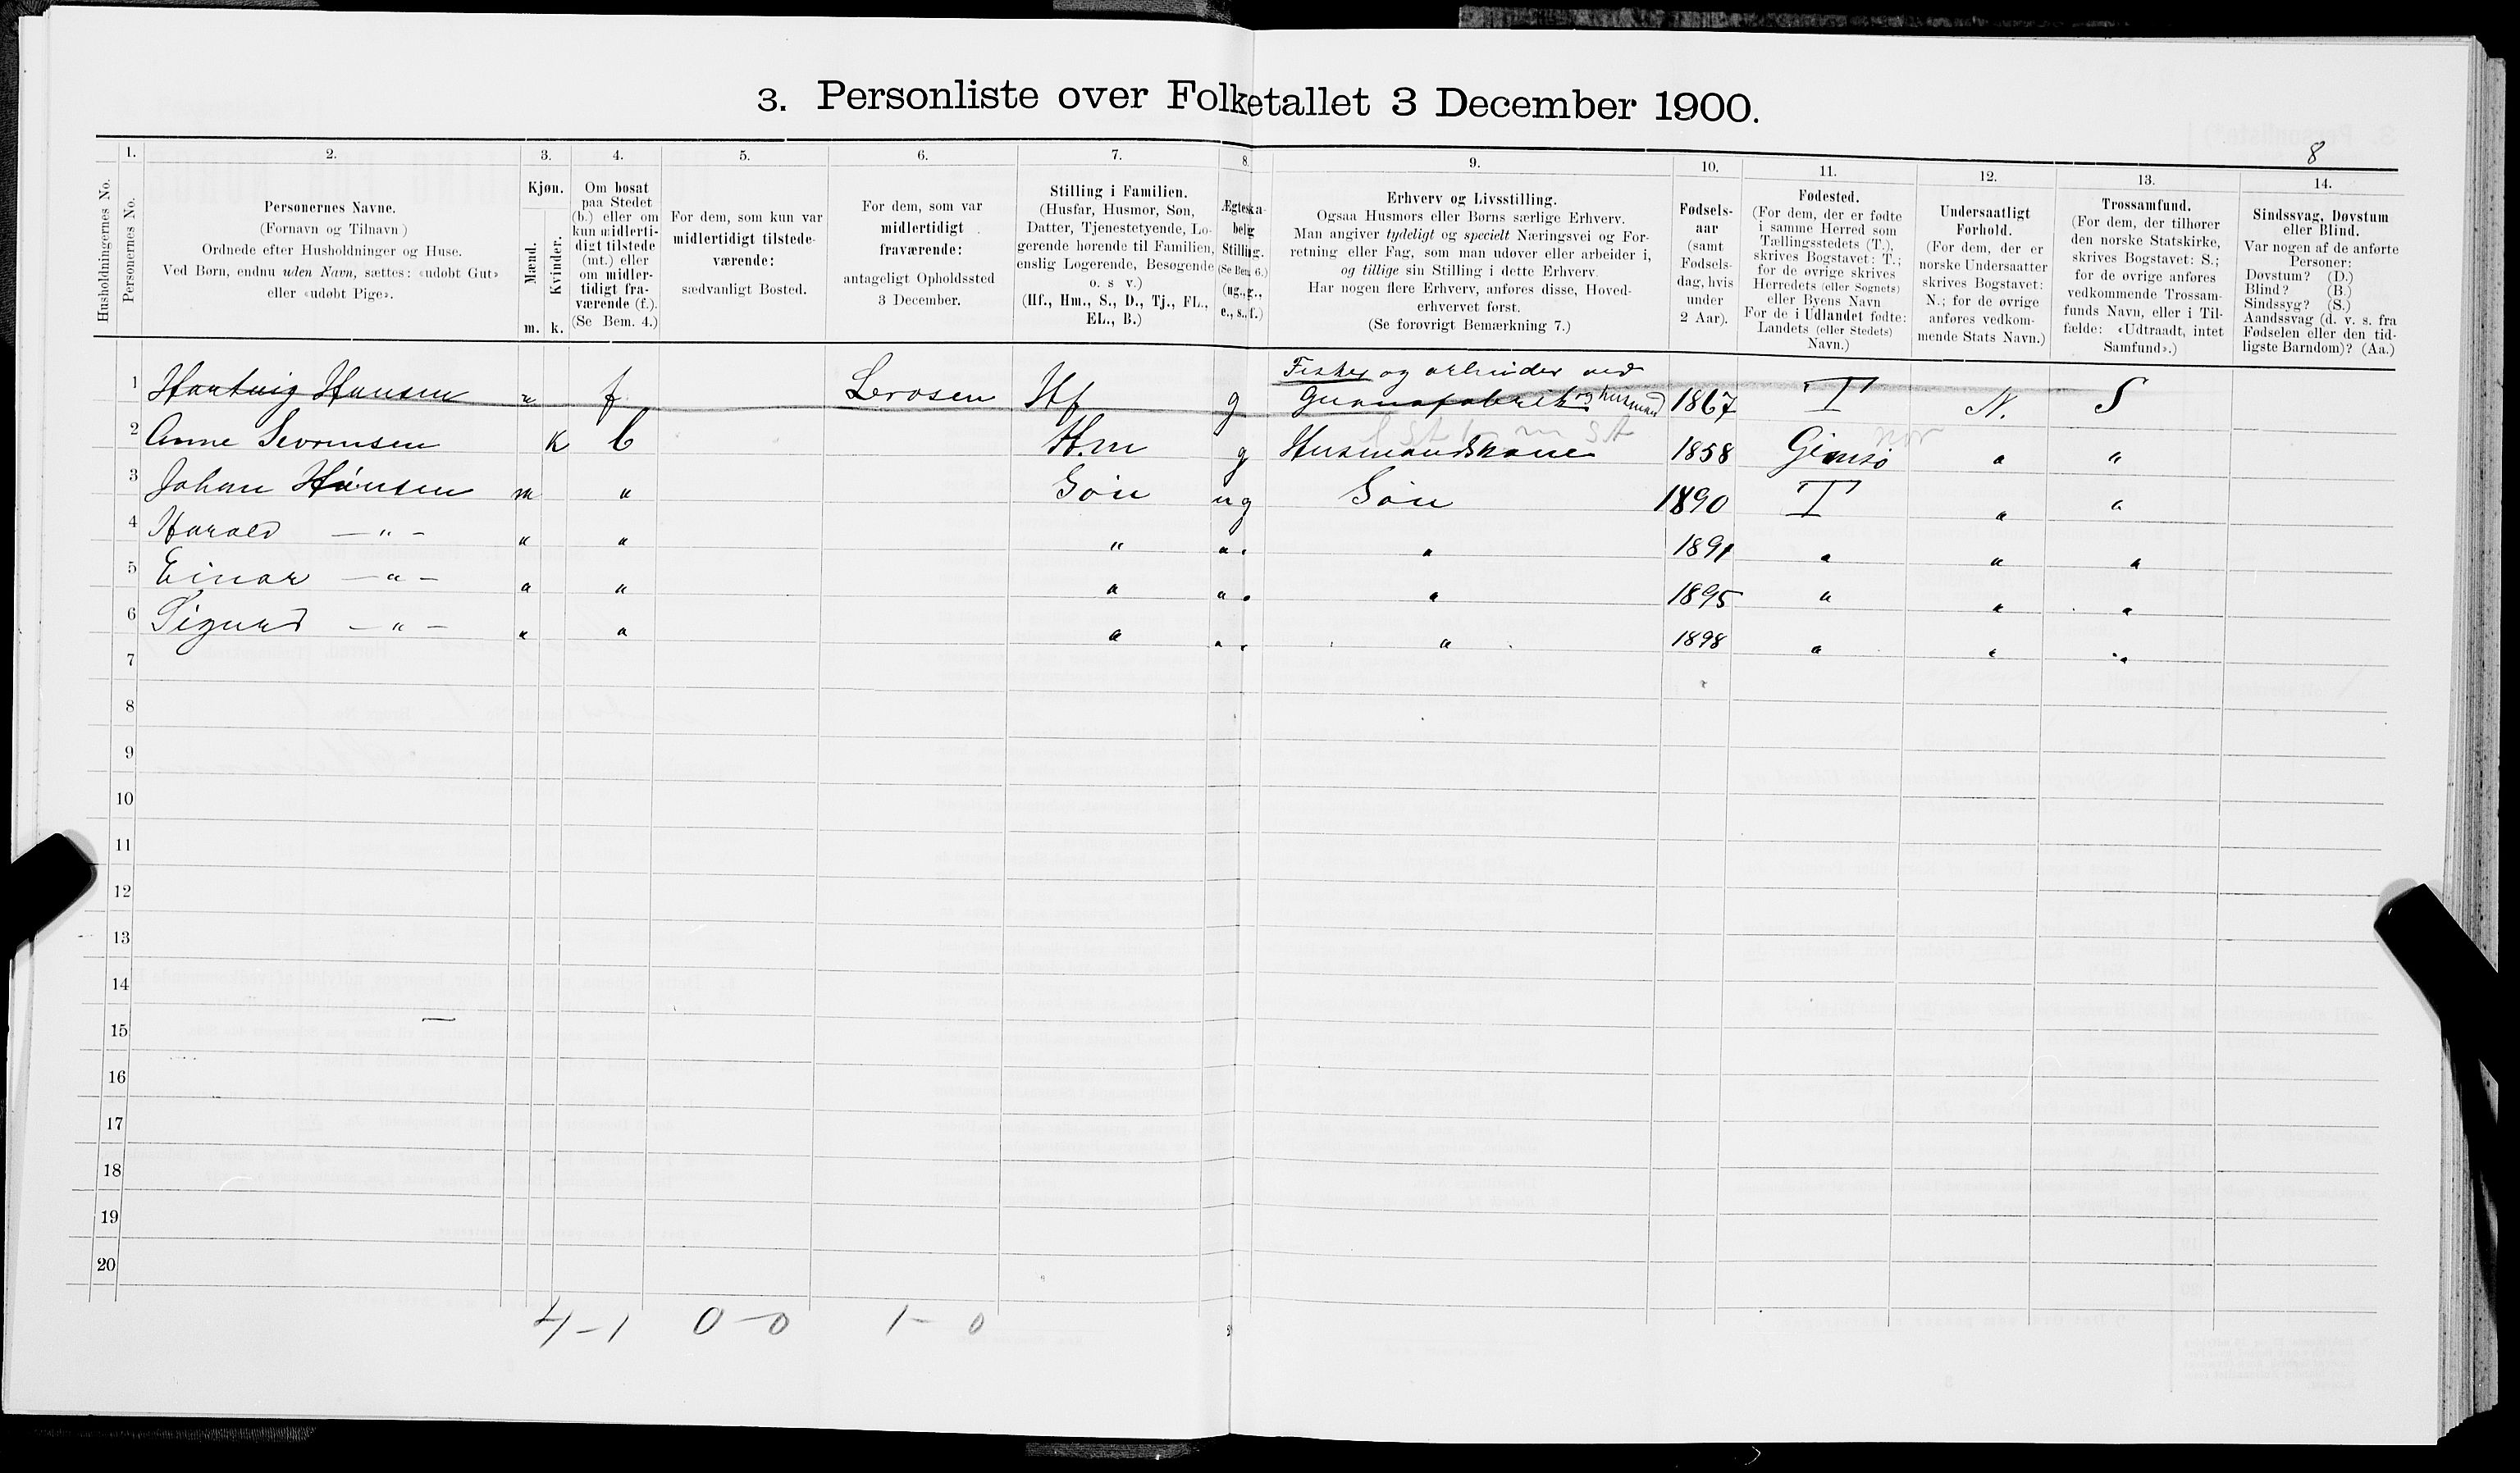 3. Personliste over Folketallet 3 December 1900.
8
1. 2. 3. 4. 5. 6. 7. 8. 9. 10. 11. 12. 13. 14.
Husholdningernes No.
Personernes No.
Personernes Navne.
(Fornavn og Tilnavn)
Ordnede efter Husholdninger og Huse.
Ved Børn, endnu uden Navn, sættes: «udøbt Gut»
eller «udøbt Pige».
Kjøn.
Mænd.
Kvinder.
m. k.
Om bosat
paa Stedet
(b.) eller om
kun midlerti-
digt tilstede
(mt.) eller
om midler-
tidigt fra-
værende (f.).
(Se Bem. 4.)
For dem, som kun var
midlertidigt tilstede-
værende:
sædvanligt Bosted.
For dem, som var
midlertidigt
fraværende:
antageligt Opholdssted
3 December.
Stilling i Familien.
(Husfar, Husmor, Søn,
Datter, Tjenestetyende, Lo-
gerende hørende til Familien,
enslig Logerende, Besøgende
o. s v.)
(Hf., Hm., S., D., Tj., FL.,
EL., B.)
Ægteska-
belig
Stilling.
(Se Bem. 6.)
(ug., g.,
e., s., f.)
Erhverv og Livsstilling.
Ogsaa Husmors eller Børns særlige Erhverv.
Man angiver tydeligt og specielt Næringsvei og For-
retning eller Fag, som man udøver eller arbeider i,
og tillige sin Stilling i dette Erhverv.
Har nogen flere Erhverv, anføres disse, Hoved-
erhvervet først.
(Se forøvrigt Bemærkning 7.)
Fødsels-
aar
(samt
Fødsels-
dag, hvis
under
2 Aar).
Fødested.
(For dem, der er fødte
i samme Herred som
Tællingsstedets (T.),
skrives Bogstavet: T.;
for de øvrige skrives
Herredets (eller Sognets)
eller Byens Navn
For de i Udlandet fødte:
Landets (eller Stedets)
Navn.)
Undersaatligt
Forhold.
(For dem, der er
norske Undersaatter
skrives Bogstavet:
N.; for de øvrige
anføres vedkom-
mende Stats Navn.)
Trossamfund.
(For dem, der tilhører
den norske Statskirke,
skrives Bogstavet: S.;
for de øvrige anføres
vedkommende Trossam-
funds Navn, eller i Til-
fælde: «Udtraadt, intet
Samfund».)
Sindssvag, Døvstum
eller Blind.
Var nogen af de anførte
Personer:
Døvstum? (D.)
Blind? (B.)
Sindssyg? (S.)
Aandssvag (d. v. s. fra
Fødselen eller den tid-
ligste Barndom)? (Aa.)
Fisker og arbeider ved
1 Hartvig Hansen m f Hf g Guanofabrik og husmand 1867 T N. S
2 Anne Sevrensen k b Hm g Husmandskone 1858 Gimsø " "
3 Johan Hansen m " Søn ug Søn 1890 T " "
4 Harald — " — " " " " " 1891 " " "
5 Einar — " — " " " " " 1895 " " "
6 Sigurd — " — " " " " " 1898 " " "
7
8
9
10
11
12
13
14
15
16
17
18
19
20
4-1 0-0 1-0